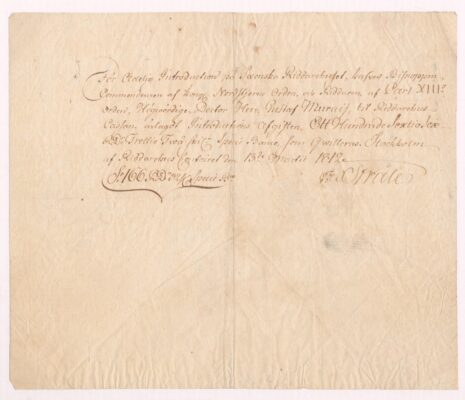 För Adelig Introduction på Svenska Riddarhuset, hafver Biskoppen
Commendeuren af Kongl. Nordstjerne Orden, och Riddaren af Carl XIII:s
Orden, Högvördige Doctor Herr Gustaf Murray, til Riddarhus
Cassan, erlagt Introductions Afgiften, Ett Hundrade Sextio Sex
RD Trettio Två sk. Specie Banco, som qvitteras. Stockholm
af Riddarhus Contoiret den 13 Martii 1812
166 RD 32 sk Specie
Stråle